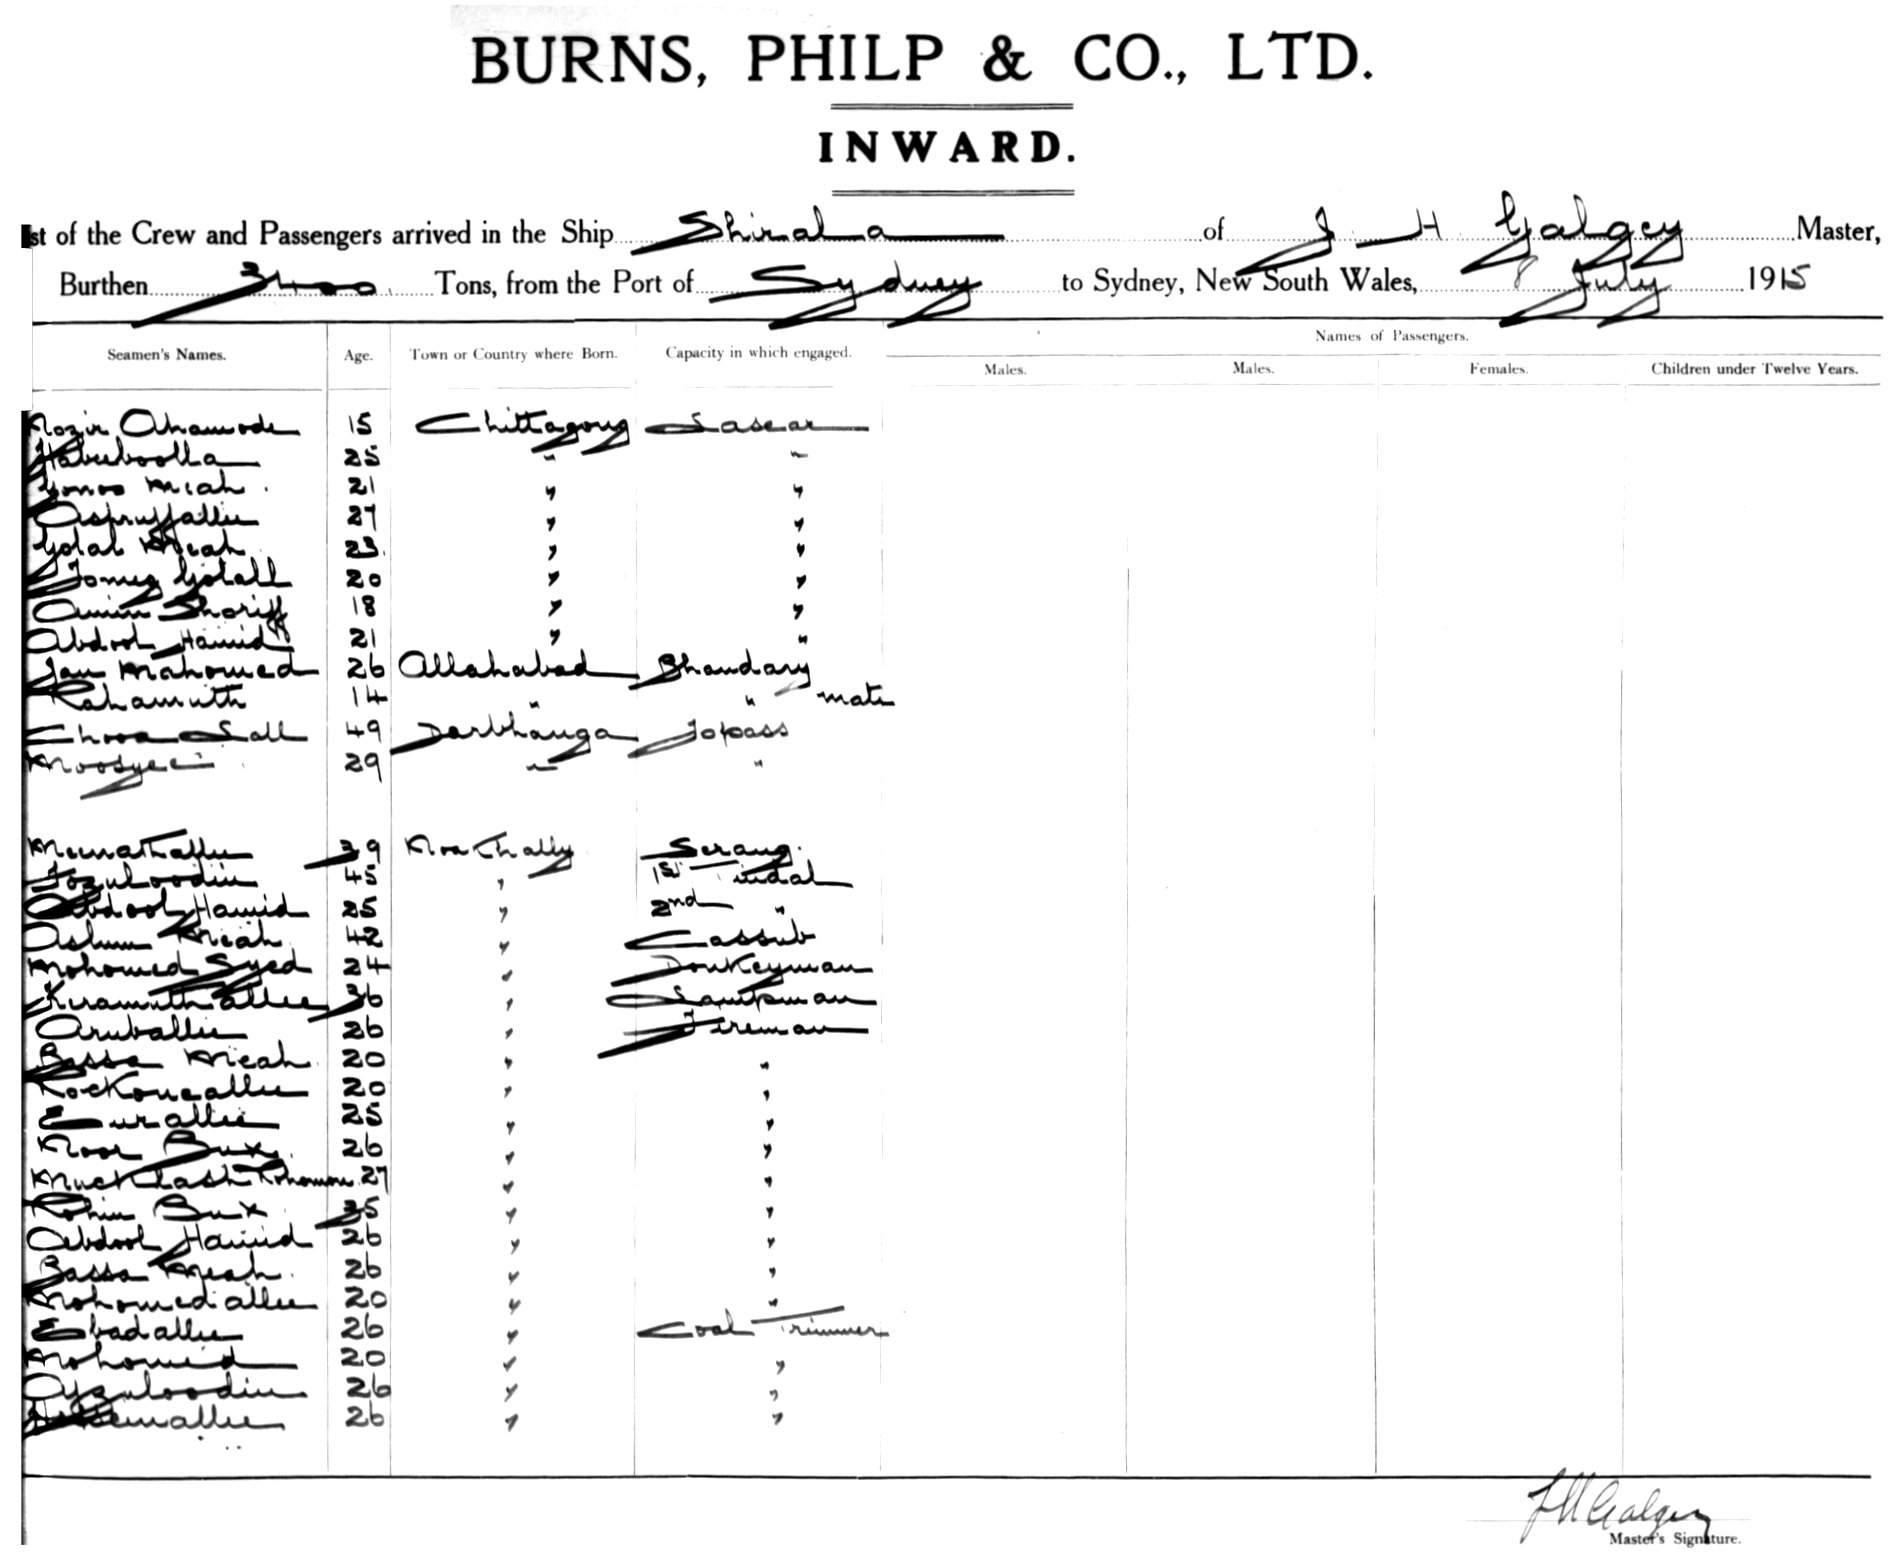 BURNS, PHILP & CO., LTD.
INWARD.
st of the Crew and Passengers arrived in the Ship Shirala of J H Galgey Master,
Burthen 3400 Tons, from the Port of Sydney to Sydney, New South Wales, 8 July 1915
Names of Passengers.
Seamen's Names. Age. Town or Country where Born. Capacity in which engaged. Males. Males. Females. Children under Twelve Years.
Nozir Ahamode 15 Chittagong Lascar
Habeeboolla 25 " "
Yonos Meah 21 " "
27 " "
Golal Meah 23 " "
Golall 20 " "
Amin Shoriff 18 " "
Abdool Hamid 21 " "
Jan Mahomed 26 Allahabad Bhandary
Rahamuth 14 " " mate
Lall 49 Darbhanga Topass
29 " "
39 Noakhally Serang
Fozuloodin 45 " 1st Tindal
Abdool Hamid 25 " 2nd "
Aslum Meah 42 " Cassub
Mohomed Syed 24 " Donkeyman
Keramuth allee 36 " Lampman
Aruballie 26 " Fireman
Bassa Meah 20 " "
20 " "
25 " "
Noor Bux 26 " "
27 " "
Rohim Bux 35 " "
Abdool Hamid 26 " "
Bassa Meah 26 " "
Mohomed allee 20 " "
Ebadallie 26 " Coal Trimmer
Mohomed 20 " "
Ayzuloodin 26 " "
26 " "
J H Galgey
Master's Signature.